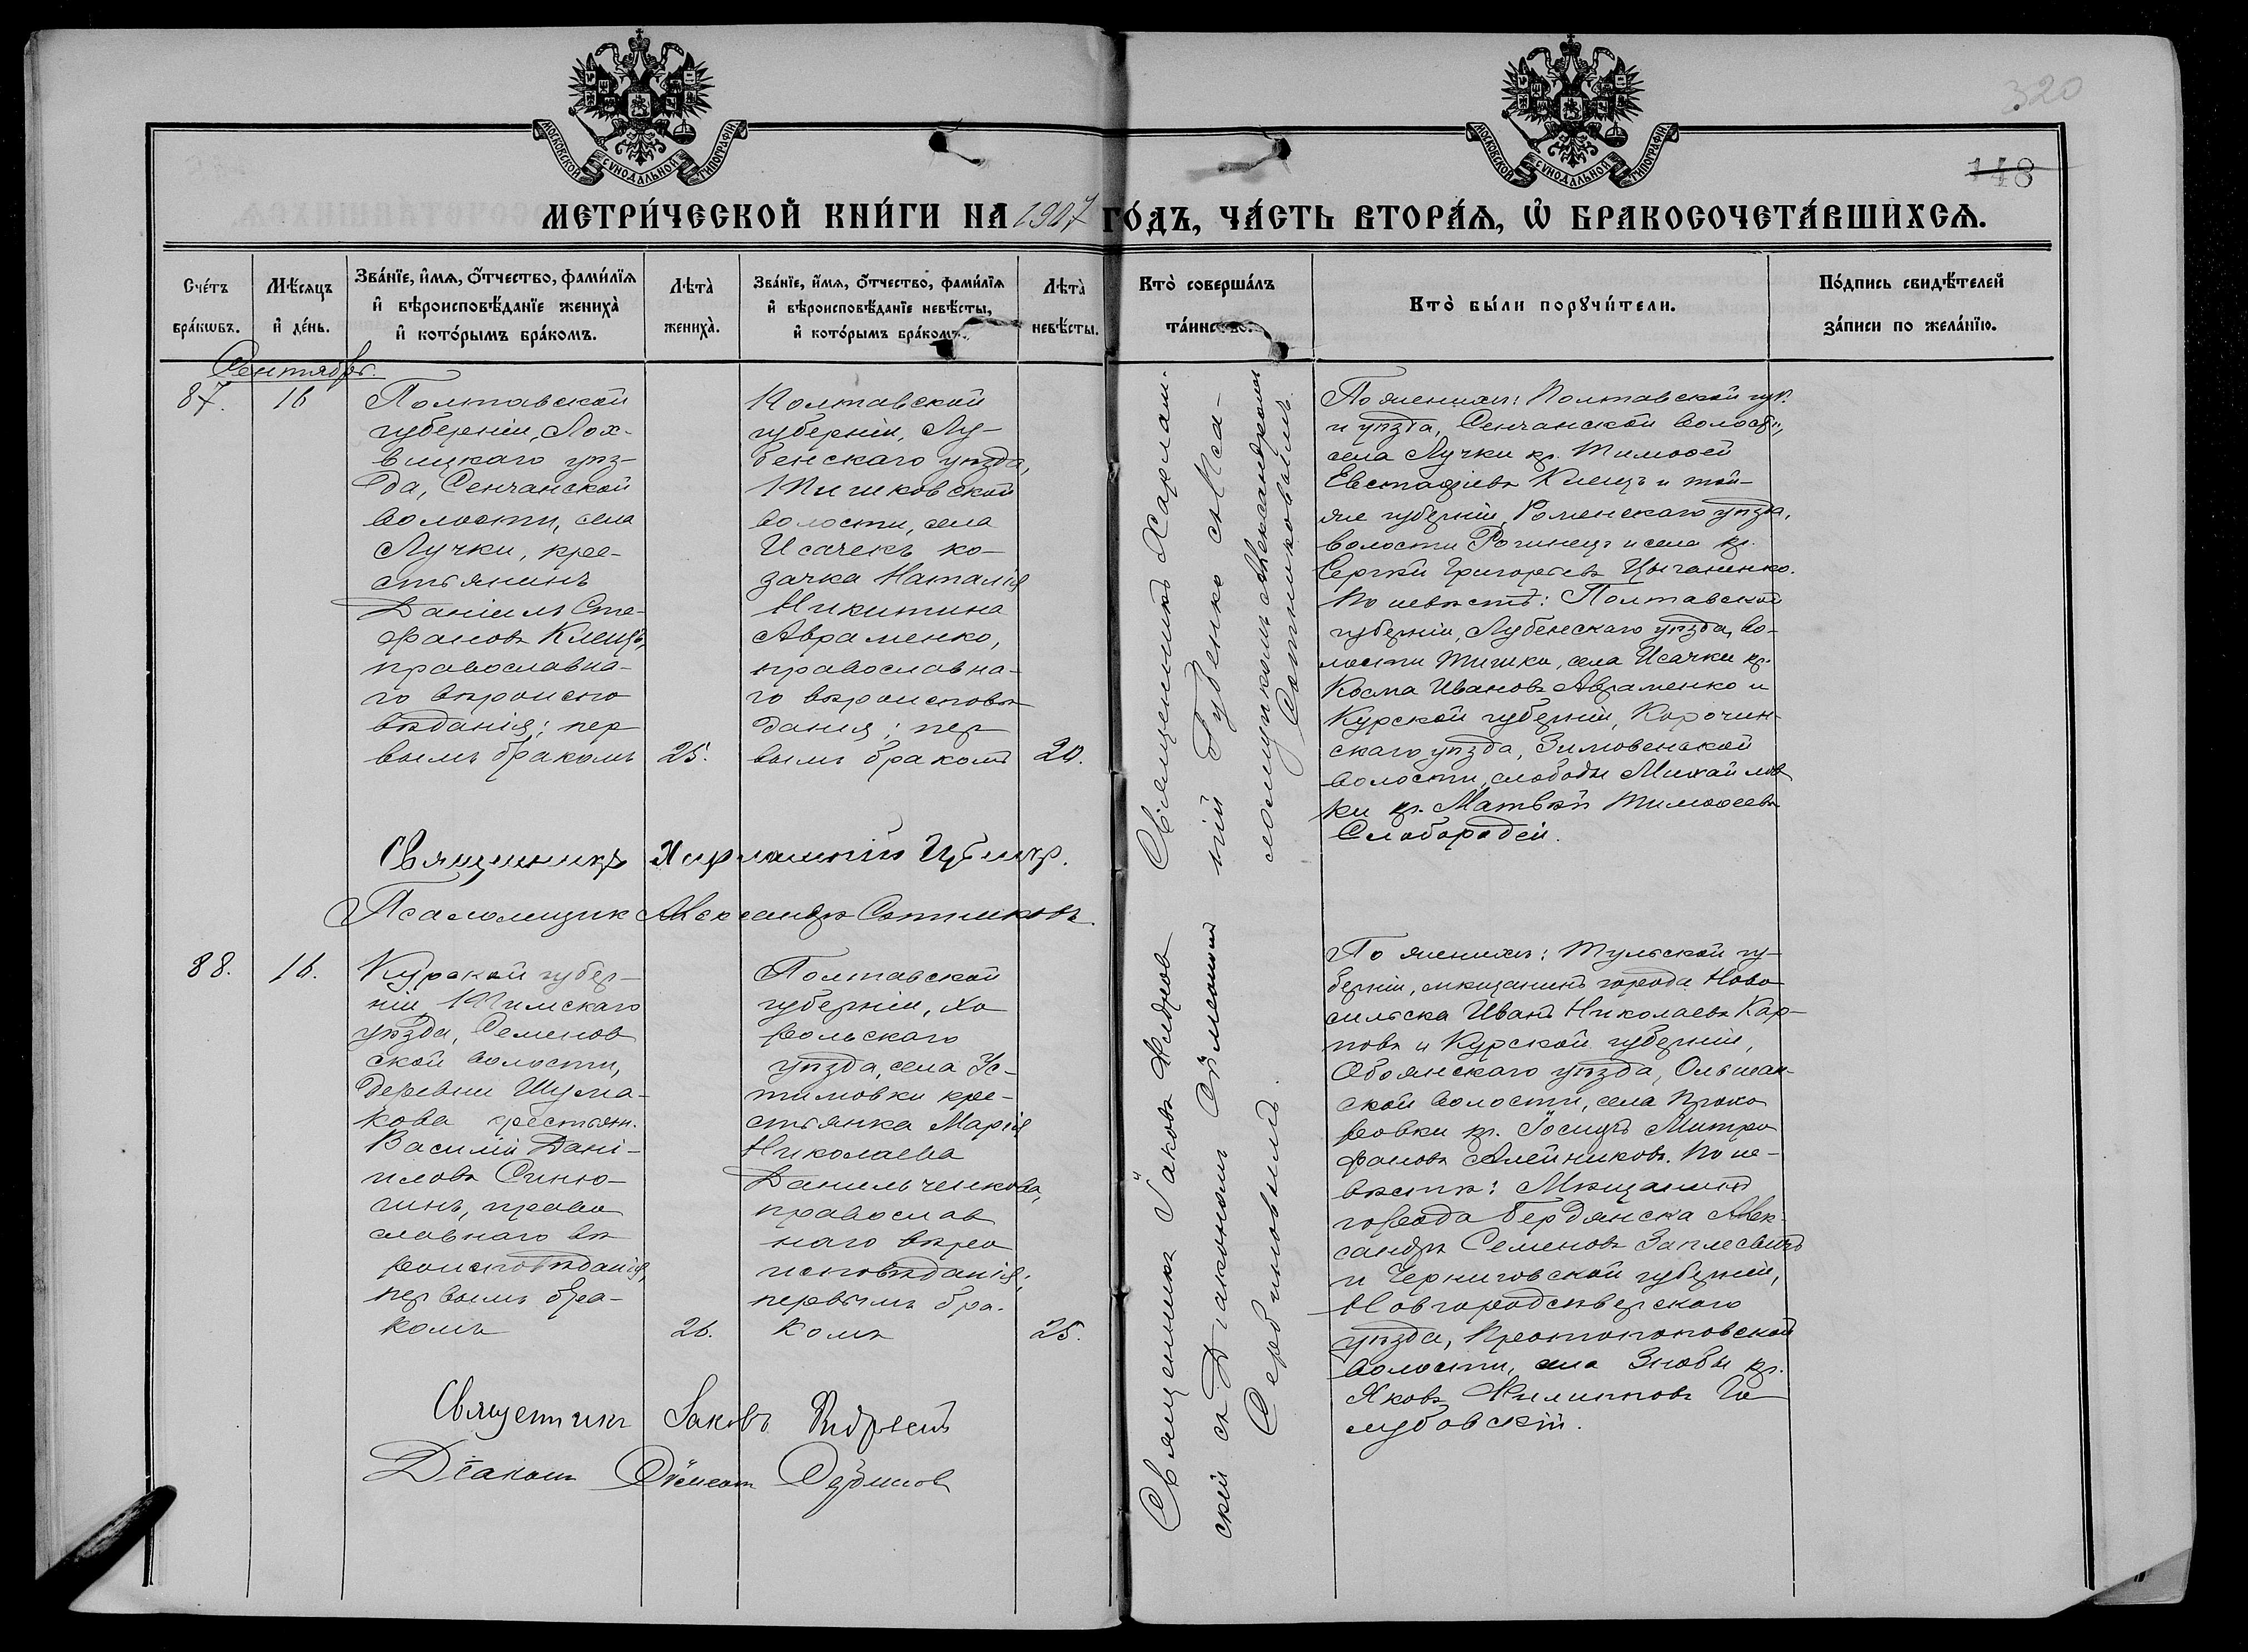 320
118
МОСКОВСКОЙ СѴНОДАЛЬНОЙ ТИПОГРАФІИ
МОСКОВСКОЙ СѴНОДАЛЬНОЙ ТИПОГРАФІИ
МЕТРИ́ЧЕСКОЙ КНИ́ГИ НА 1907 ГО́ДЪ, ЧА́СТЬ ВТОРА́Я, Ѡ БРАКОСОЧЕТА́ВШИХСѦ.
Сче́тъ бра́кѡвъ.
Мѣ́сяцъ и де́нь.
Зва́нїе, и́мѧ, ѻ́тчество, фами́лїѧ и вѣроисповѣ́данїе жениха̀ и кото́рымъ бра́комъ.
Лѣта̀ жениха̀.
Зва́нїе, и́мѧ, ѻ́тчество, фами́лїѧ и вѣроисповѣ́данїе невѣ́сты, и кото́рымъ бра́комъ.
Лѣта̀ невѣ́сты.
Кто̀ соверша́лъ та́инство.
Кто̀ бы́ли порꙋчи́тели.
По́дпись свидѣ́телей за́писи по жела́нїю.
Сентябрь.
87.
16
Полтавской
губерніи, Лох-
вицкаго уѣз-
да, Сенчанской
волости, села
Лучки, кре-
стьянинъ
Даніилъ Сте-
фановъ Клещъ,
православна-
го вѣроиспо
вѣданія; пер
вымъ бракомъ
25.
Полтавской
губерніи, Лу-
бенскаго уѣзда,
Тишковской
волости, села
Исачекъ ко-
зачка Наталія
Никитина
Авраменко,
православна-
го вѣроисповѣ
данія; пер
вымъ бракомъ
20.
Священникъ Харлам-
пій Губенко съ Пса-
ломщикомъ Александромъ
Сотниковымъ.
По женихѣ: Полтавской губ.
и уѣзда, Сенчанской волости,
села Лучки кр. Тимофей
Евстафіевъ Клещъ и той-
же губерніи, Роменскаго уѣзда,
волости Рогинецъ и села кр.
Сергѣй Григорьевъ Цыганенко.
По невѣстѣ: Полтавской
губерніи, Лубенскаго уѣзда, во-
лости Тишки, села Исачки кр.
Косма Ивановъ Авраменко и
Курской губерніи, Корочин-
скаго уѣзда, Зимовенской
волости, слободы Михайлов
ки кр. Матвѣй Тимофеевъ
Слабородей.
Священникъ Харлампій Губенко.
Псаломщик Александръ Сотниковъ.
88.
16.
Курской губер-
ніи, Тимскаго
уѣзда, Семенов
ской волости,
деревни Шума-
кова крестьян.
Василій Дані-
иловъ Синю-
гинъ, право
славнаго вѣ
роисповѣданія,
первымъ бра-
комъ
26.
Полтавской
губерніи, Хо
рольскаго
уѣзда, села Ус-
тимовки кре-
стьянка Марія
Николаева
Данильченкова,
православ
наго вѣро
исповѣданія;
первымъ бра-
комъ
25.
Священникъ Іаковъ
скій съ Діакономъ Сѵмеономъ
Сербиновымъ.
По женихѣ: Тульской гу-
берніи, мѣщанинъ города Ново
сильска Иванъ Николаевъ Кар-
повъ и Курской губерніи,
Обоянскаго уѣзда, Ольшан-
ской волости, села Прохо
ровки кр. Іосифъ Митро
фановъ Алейниковъ. По не-
вѣстѣ: Мѣщанинъ
города Бердянска Алек-
сандръ Семеновъ
и Черниговской губерніи,
Новгородсѣверскаго
уѣзда, Протопоповской
волости, села Знобы кр.
Яковъ Филипповъ Го
лубовскій.
Священникъ Іаковъ
Діаконъ Сѵмеонъ Сербиновъ